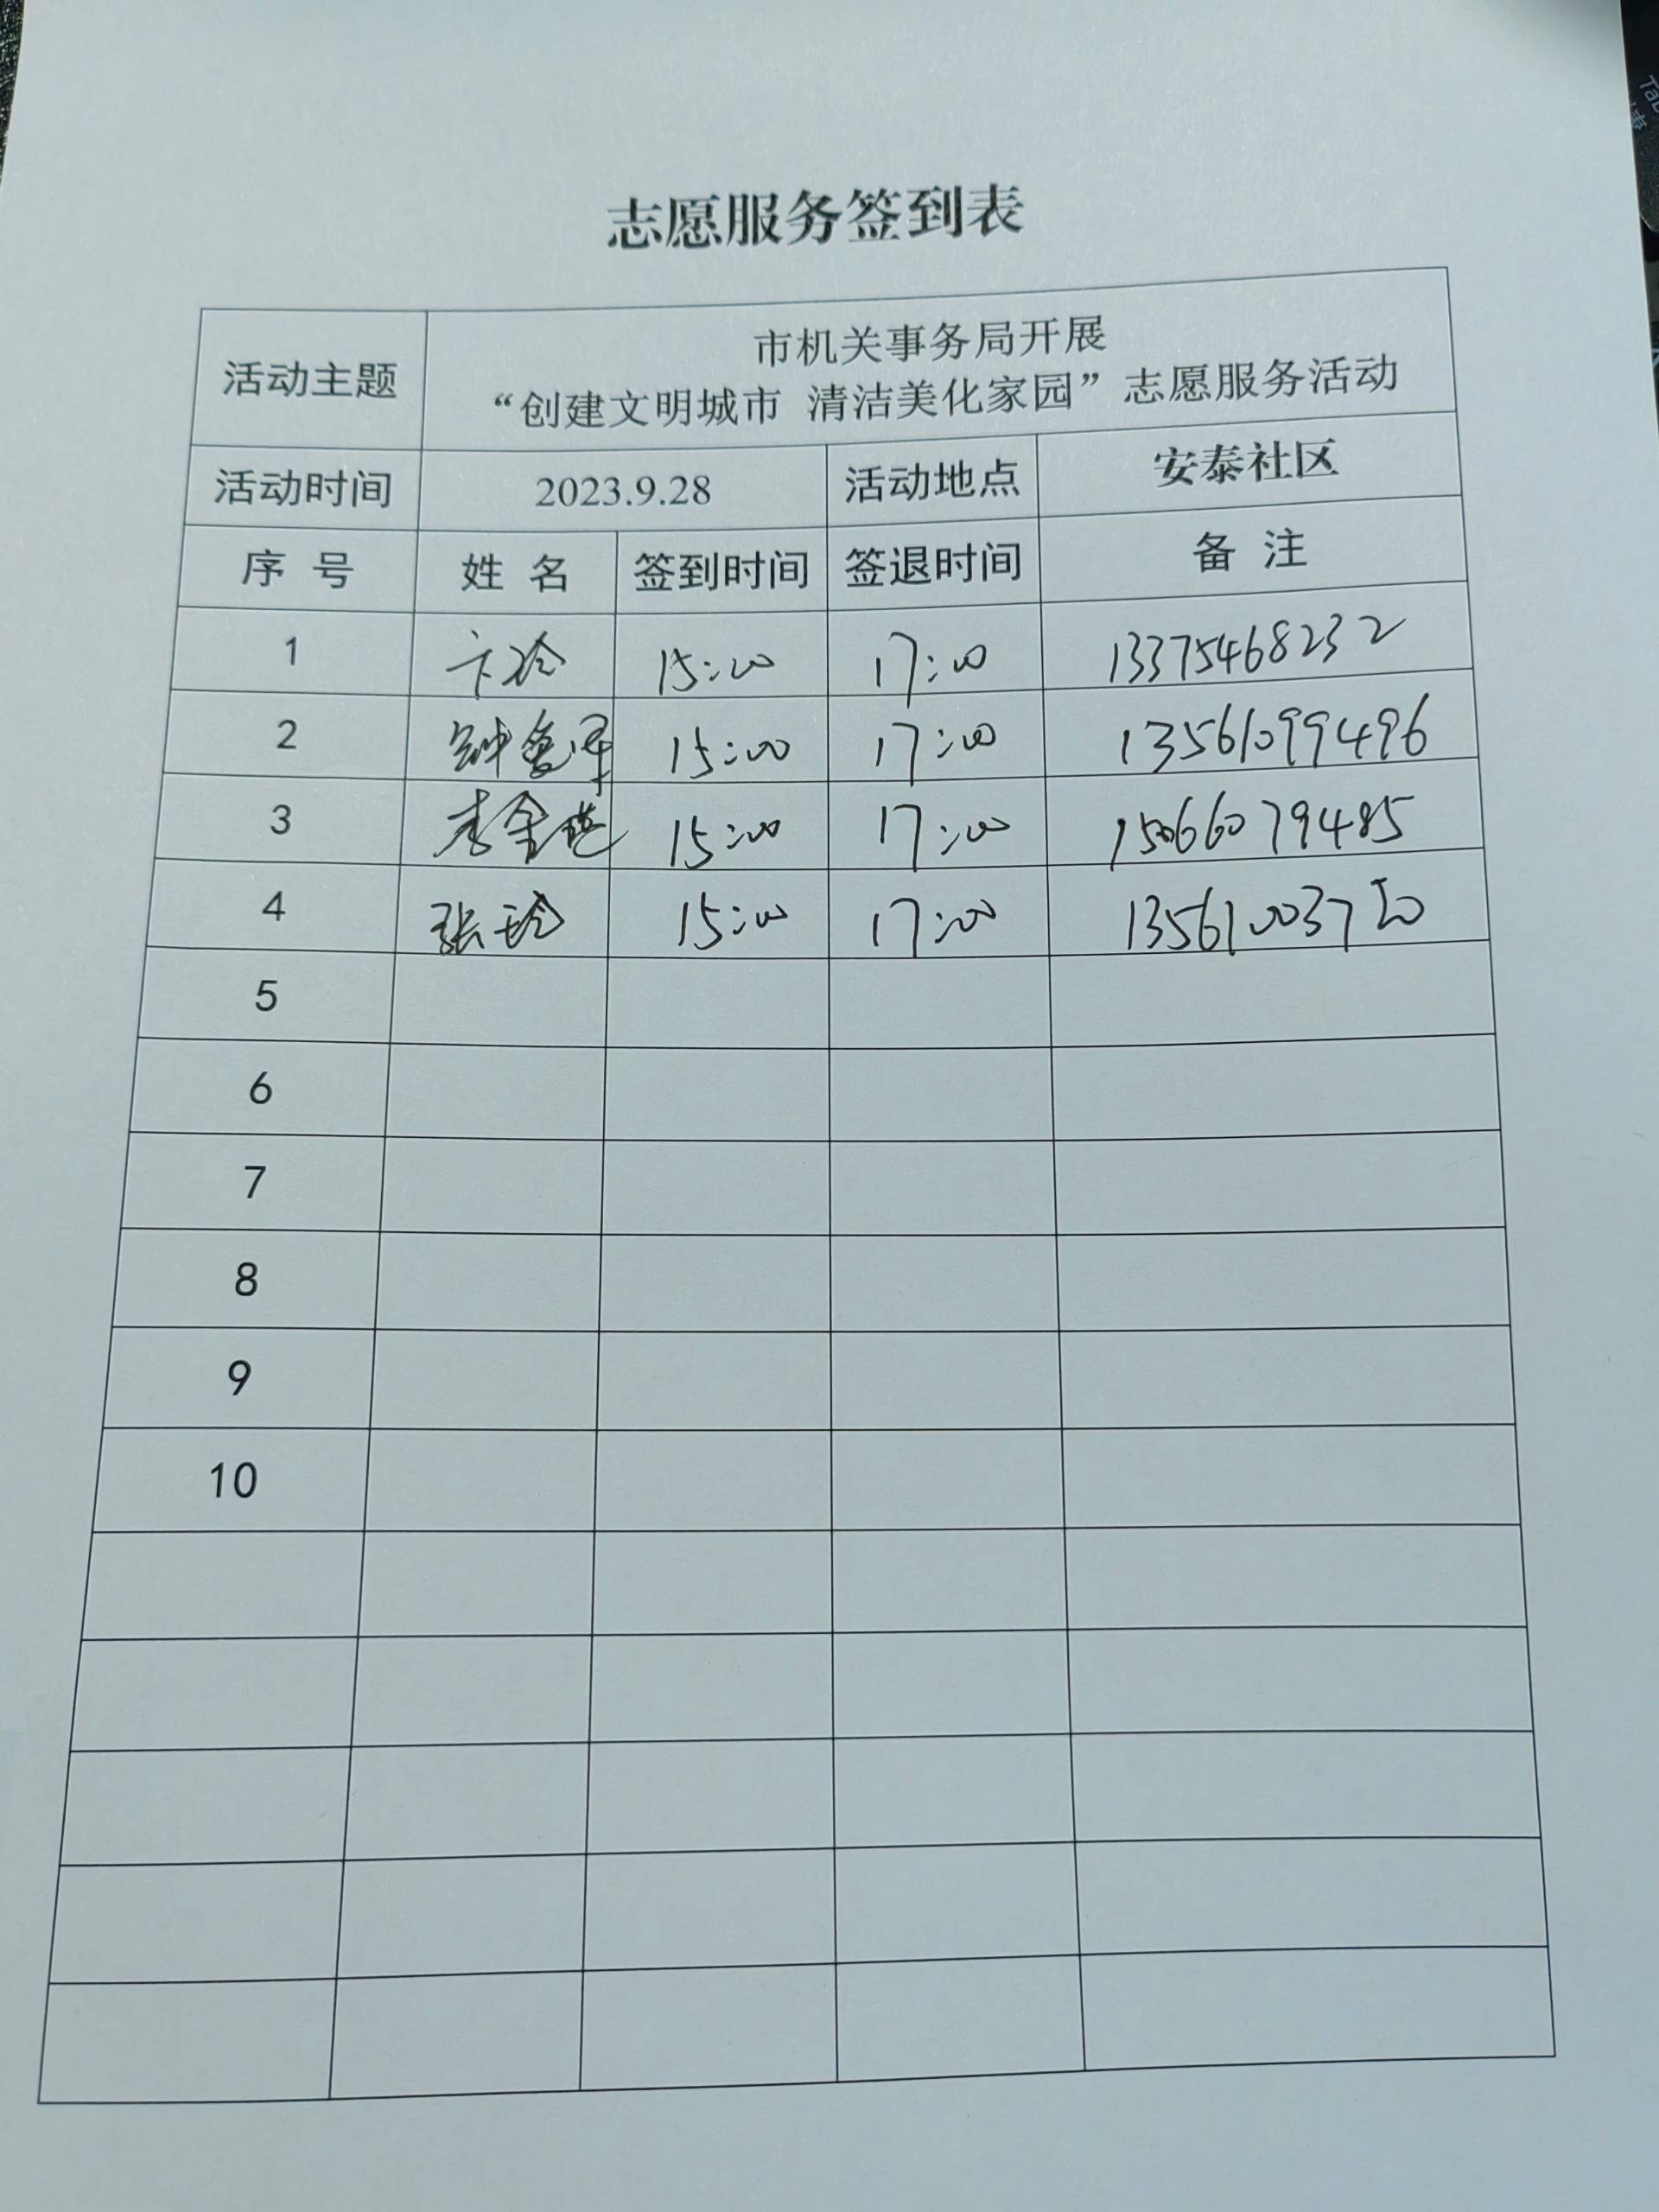 志愿服务签到表
活动主题
市机关事务局开展
“创建文明城市 清洁美化家园”志愿服务活动
活动时间 2023.9.28 活动地点 安泰社区
序 号 姓 名 签到时间 签退时间 备 注
1 卞玲 15:00 17:00 13375468232
2 15:00 17:00 13561099496
3 15:00 17:00 15066079485
4 张玲 15:00 17:00
5
6
7
8
9
10